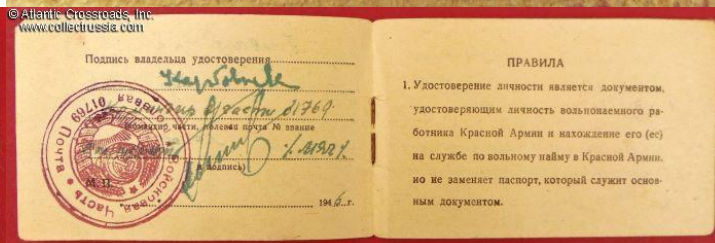 © Atlantic Crossroads, Inc.
www.collectrussia.com
Подпись владельца удостоверения
части 01769
Командир части, полевая почта № звание
(подпись)
М. П.
1946 г.
Войсковая Часть * Полевая Почта 01769 *
ПРАВИЛА
1. Удостоверение личности является документом,
удостоверяющим личность вольнонаемного ра-
ботника Красной Армии и нахождение его (ее)
на службе по вольному найму в Красной Армии,
но не заменяет паспорт, который служит основ-
ным документом.